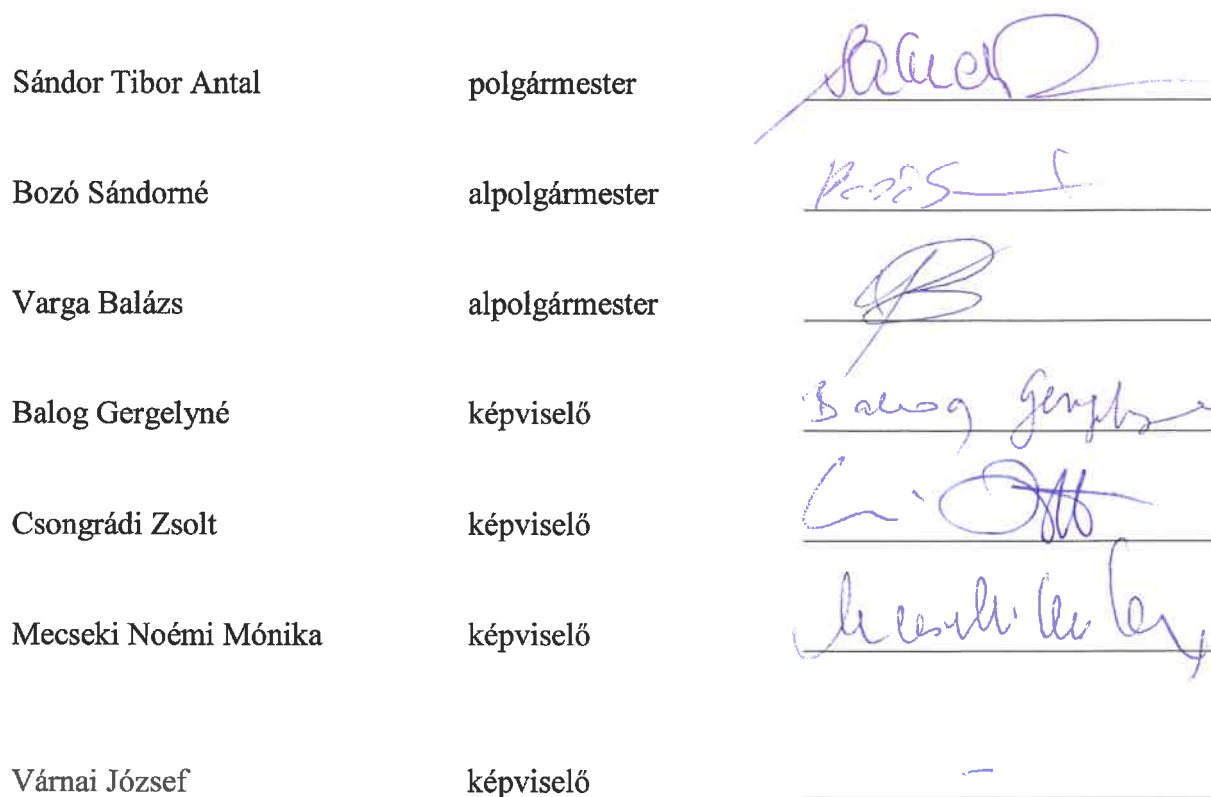 Sándor Tibor Antal polgármester
Bozó Sándorné alpolgármester
Varga Balázs alpolgármester
Balog Gergelyné képviselő Balog
Csongrádi Zsolt képviselő
Mecseki Noémi Mónika képviselő
Várnai József képviselő –